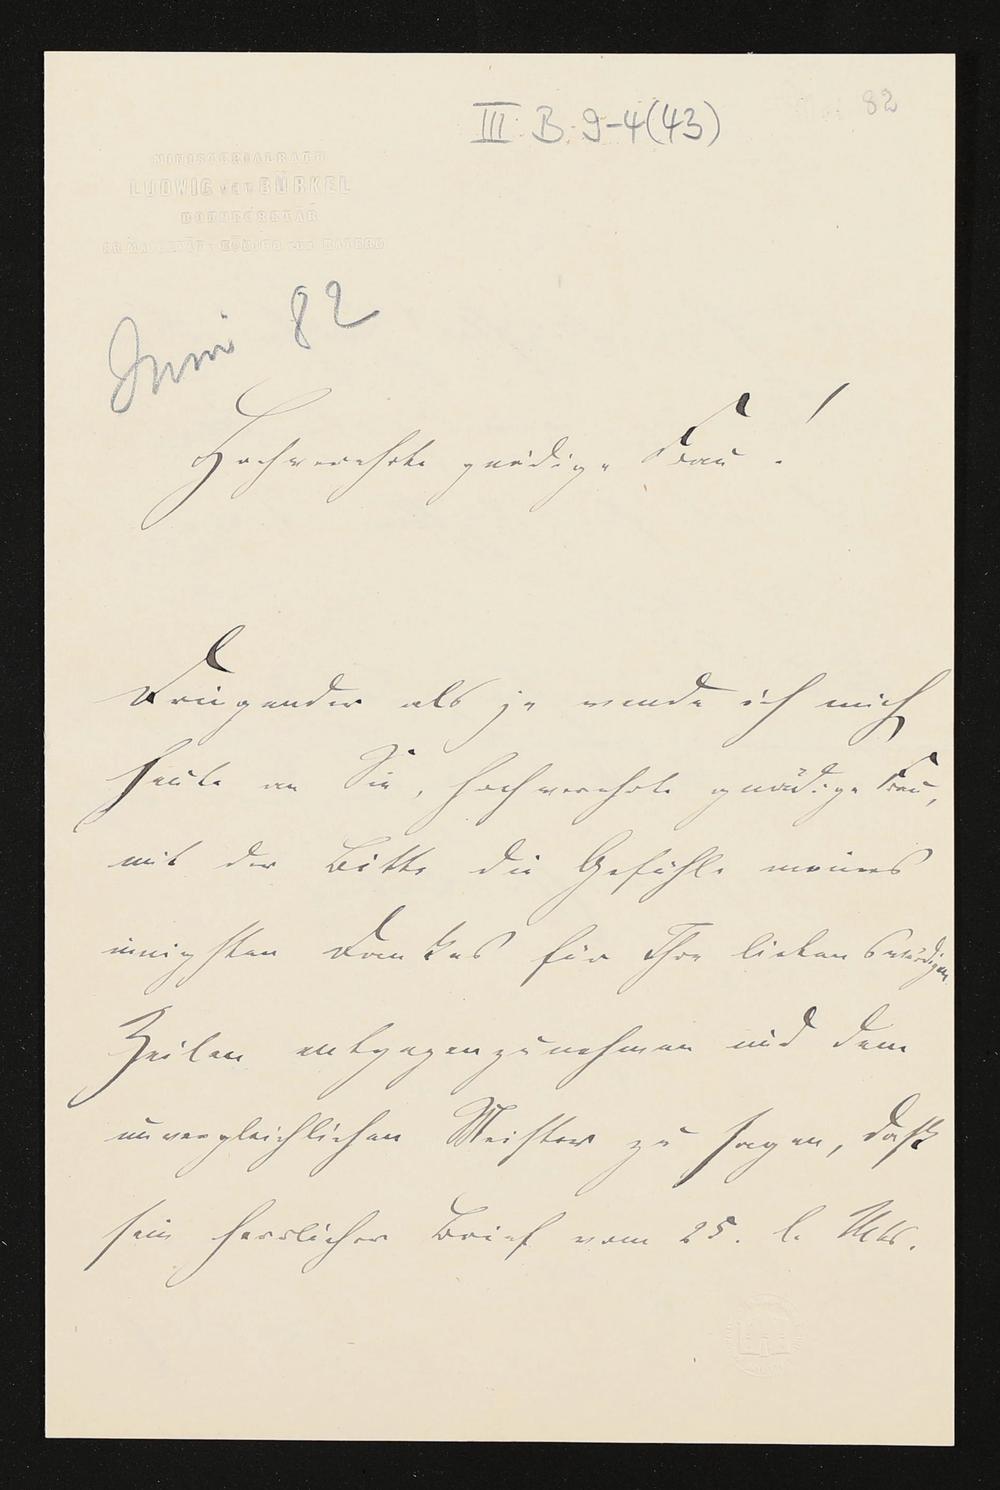 III B 9-4(43)
82
MINISTERIALRATH
LUDWIG von BÜRKEL
HOFSECRETÄR
SR MAJESTÄT KÖNIG von BAYERN
Juni 82
Hochverehrte gnädige Frau!
Dringender als je wende ich mich
heute an Sie, hochverehrte gnädige Frau,
mit der Bitte die Gefühle meines
innigsten Dankes für Ihre liebenswürdigen
Zeilen entgegenzunehmen und dem
unvergleichlichen Meister zu sagen, daß
sein herrlicher Brief vom 25. l. Mts.